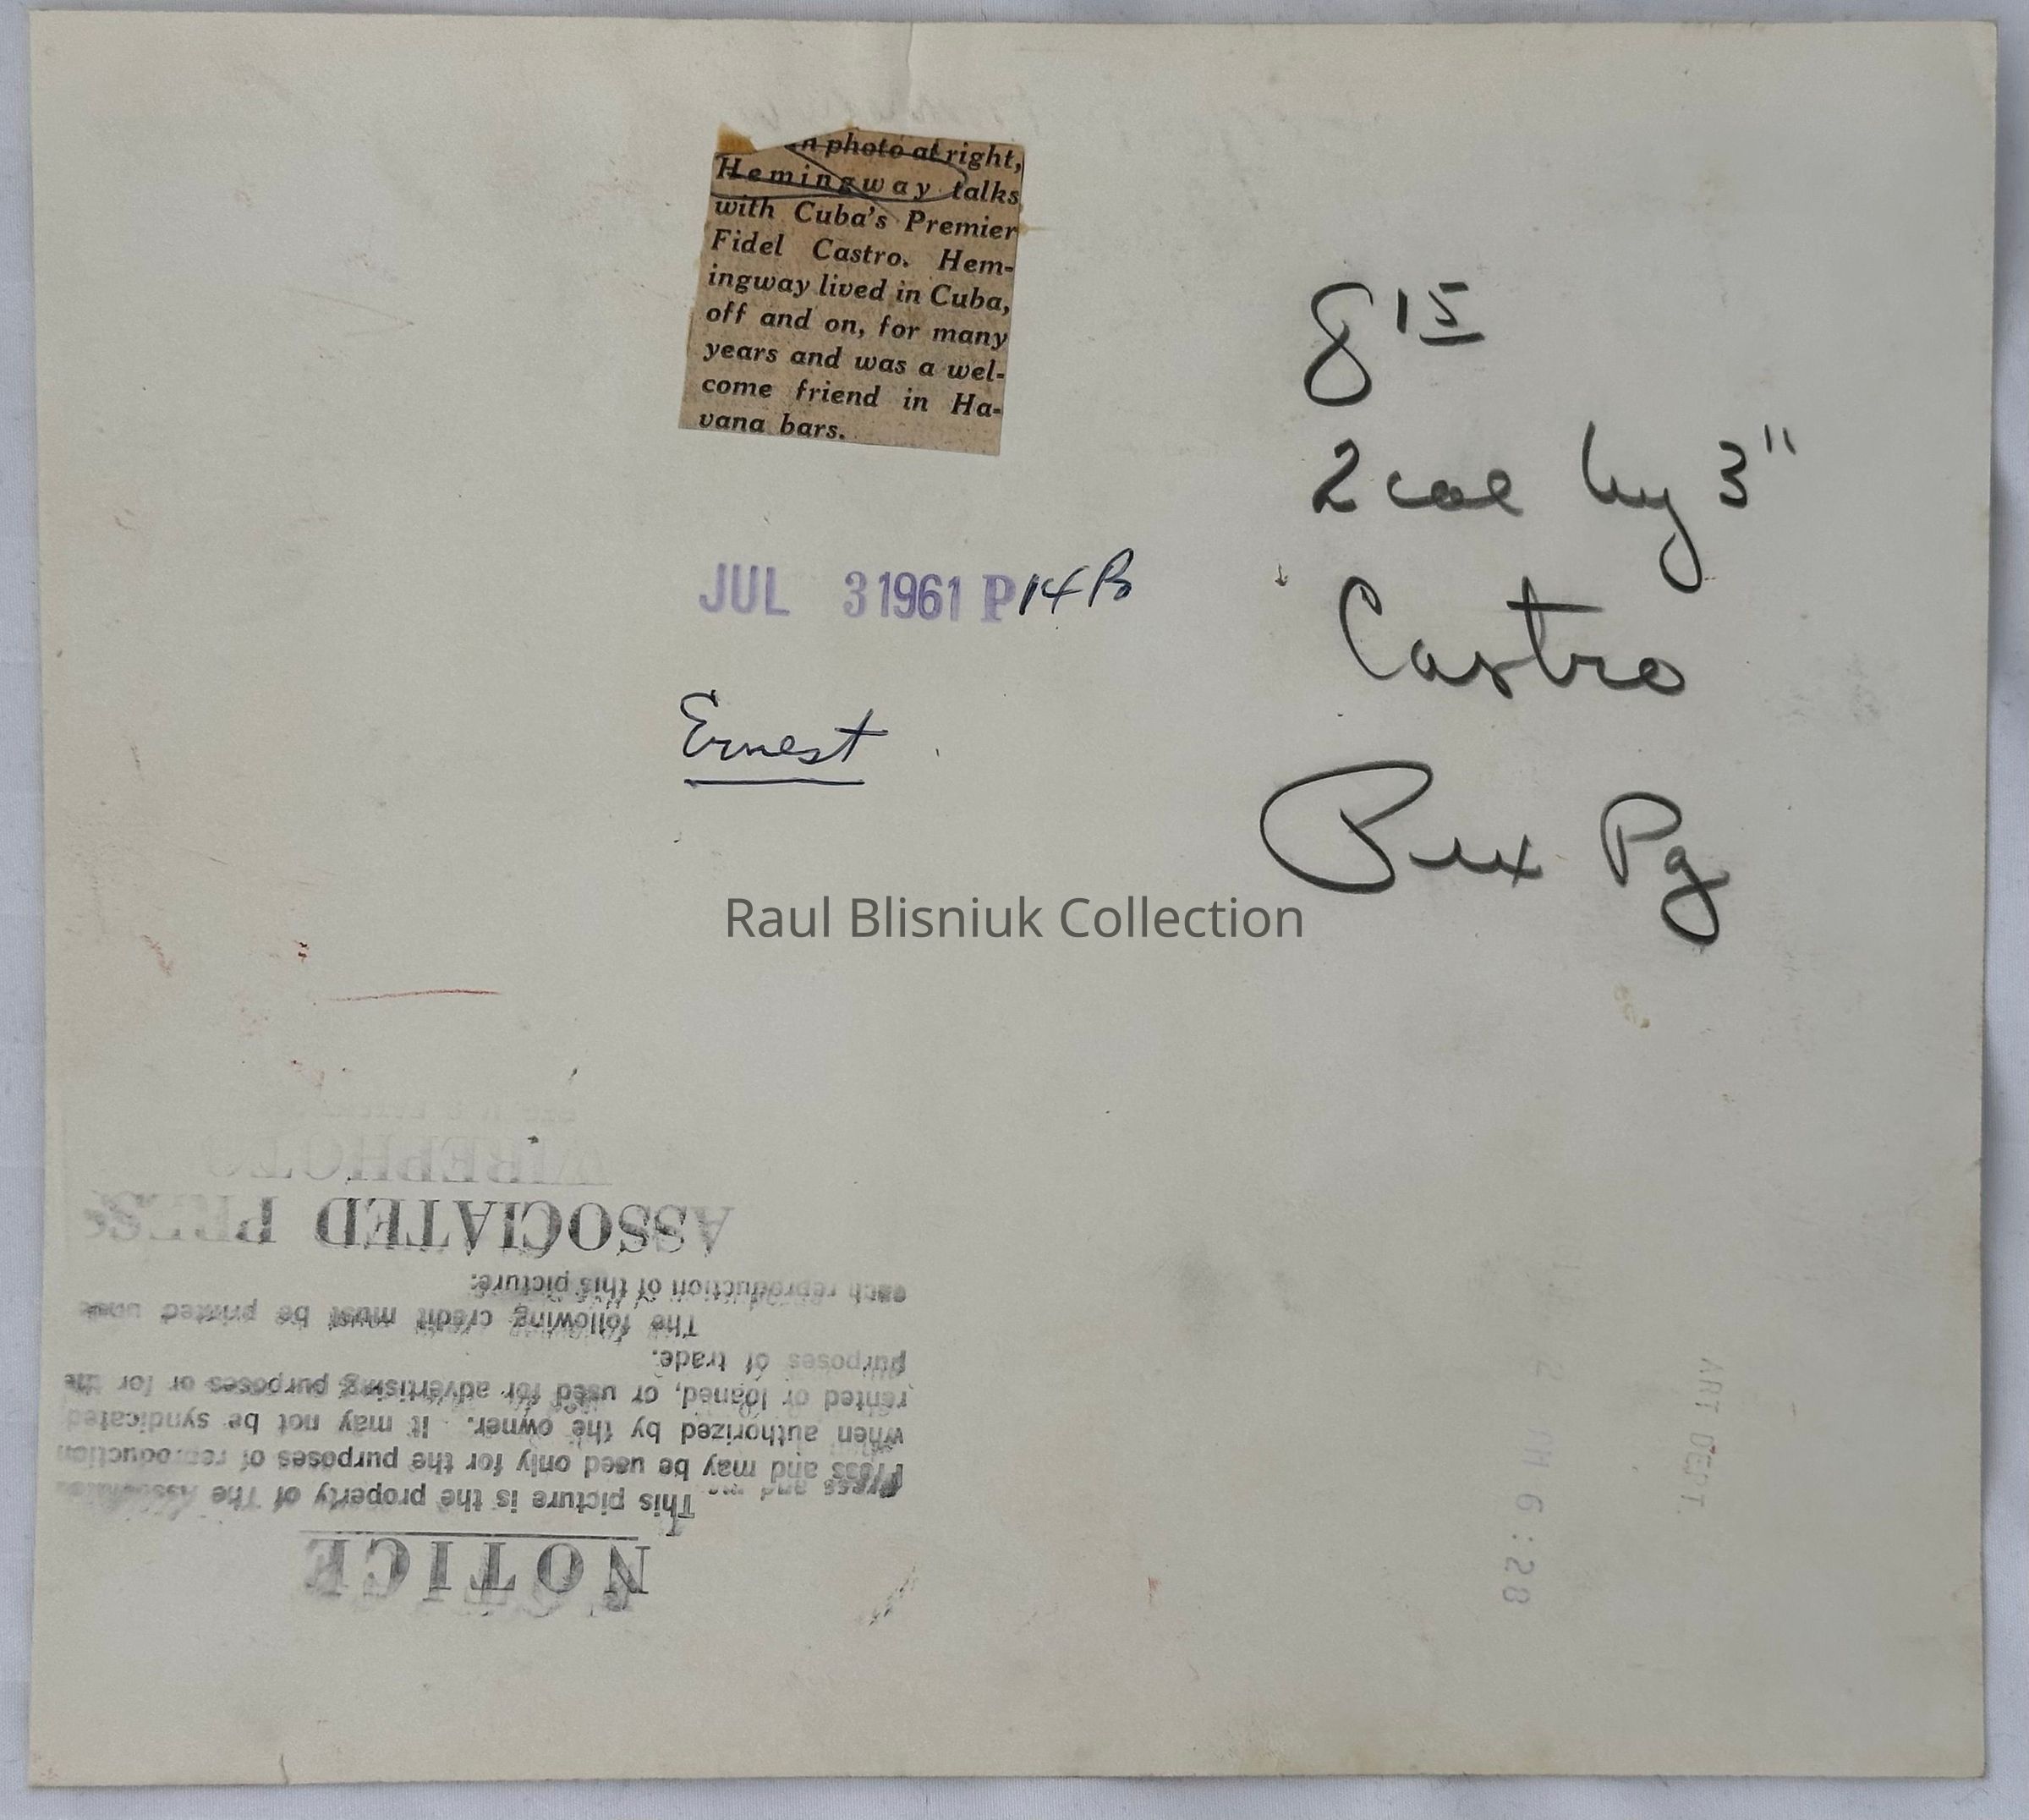 n photo at right,
Hemingway talks
with Cuba's Premier
Fidel Castro. Hem-
ingway lived in Cuba,
off and on, for many
years and was a wel-
come friend in Ha-
vana bars.
JUL 3 1961 P 14 B
Ernest
8 15
2 col by 3"
Castro
Pix Pg
Raul Blisniuk Collection
NOTICE
This picture is the property of The Associated
Press and may be used only for the purposes of reproduction
when authorized by the owner. It may not be syndicated
rented or loaned, or used for advertising purposes or for the
purposes of trade.
The following credit must be printed
each reproduction of this picture:
ASSOCIATED PRESS
WIREPHOTO
ART DEPT.
6:28